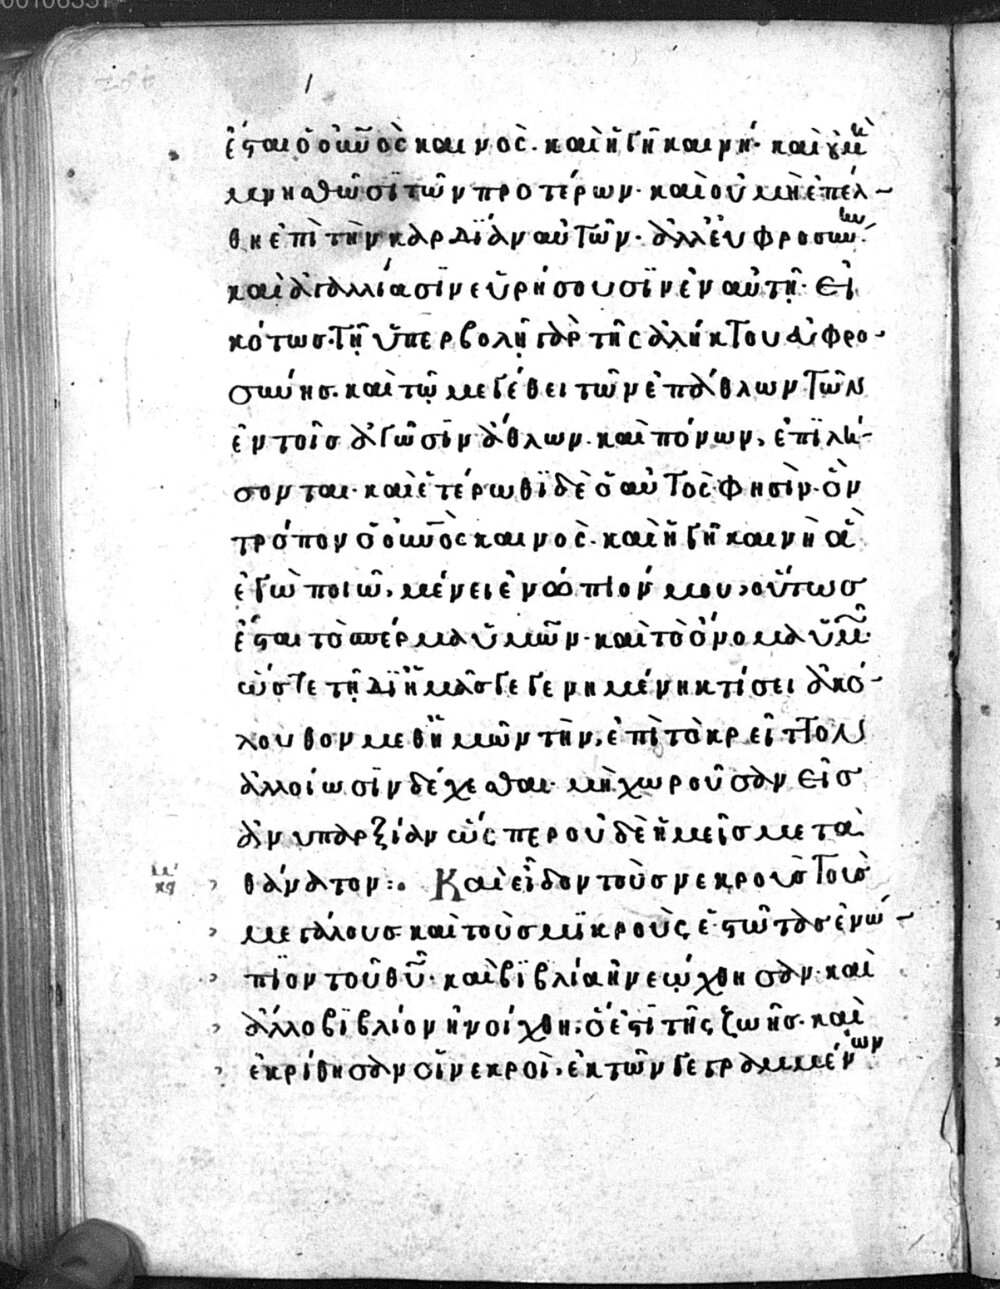 ἔσται ὁ οὐνὸς καινὸς· καὶ ἡ γῆ καινή· καὶ οὐ μὴ
μνησθῶσϊ τῶν προτέρων· καὶ οὐ μὴ ἐπέλ-
θη ἐπὶ τὴν καρδϊαν αὐτῶν· ἀλλ' εὐφροσύνην
καὶ ἀγαλλίασϊν εὑρήσουσϊν ἐν αὐτῆ· εἰ
κότως· τῆ ὑπερβολῆ γὰρ τῆς ἀλήκτου εὐφρο-
σύνης· καὶ τῶ μεγέθει τῶν ἐπάθλων τῶν
ἐν τοῖς ἀγῶσϊν ἄθλων· καὶ πόνων, ἐπϊλή-
σονται· καὶ ἑτέρωθϊ δὲ ὁ αὐτὸς φησὶν· ὃν
τρόπον ὁ οὐνὸς καινὸς· καὶ ἡ γῆ καινὴ ἃ
ἐγὼ ποιῶ, μένει ἐνώπιόν μου, οὕτως
ἔσται τὸ σπέρμα ὑμῶν· καὶ τὸ ὄνομα ὑμῶν·
ὥστε τῆ δϊ ἡμᾶς γεγενημένη κτίσει ἀκό-
λουθον μεθ' ἡμῶν τὴν, ἐπὶ τὸ κρεῖττον
ἀλλοίωσϊν δέχεσθαι· μὴ χωροῦσαν εἰς
ἀνυπαρξίαν ὥσπερ οὐδὲ ἡμεῖς μετὰ
θάνατον:· Καὶ εἶδον τοὺς νεκροὺς τοὺς
μεγάλους καὶ τοὺς μϊκροὺς ἑστῶτας ἐνώ-
πϊον τοῦ θυ· καὶ βϊβλία ἠνεώχθησαν· καὶ
ἄλλο βϊβλίον ἠνοίχθη, ὅ ἐστι τῆς ζωῆς· καὶ
ἐκρίθησαν οἱ νεκροὶ, ἐκ τῶν γεγραμμένων